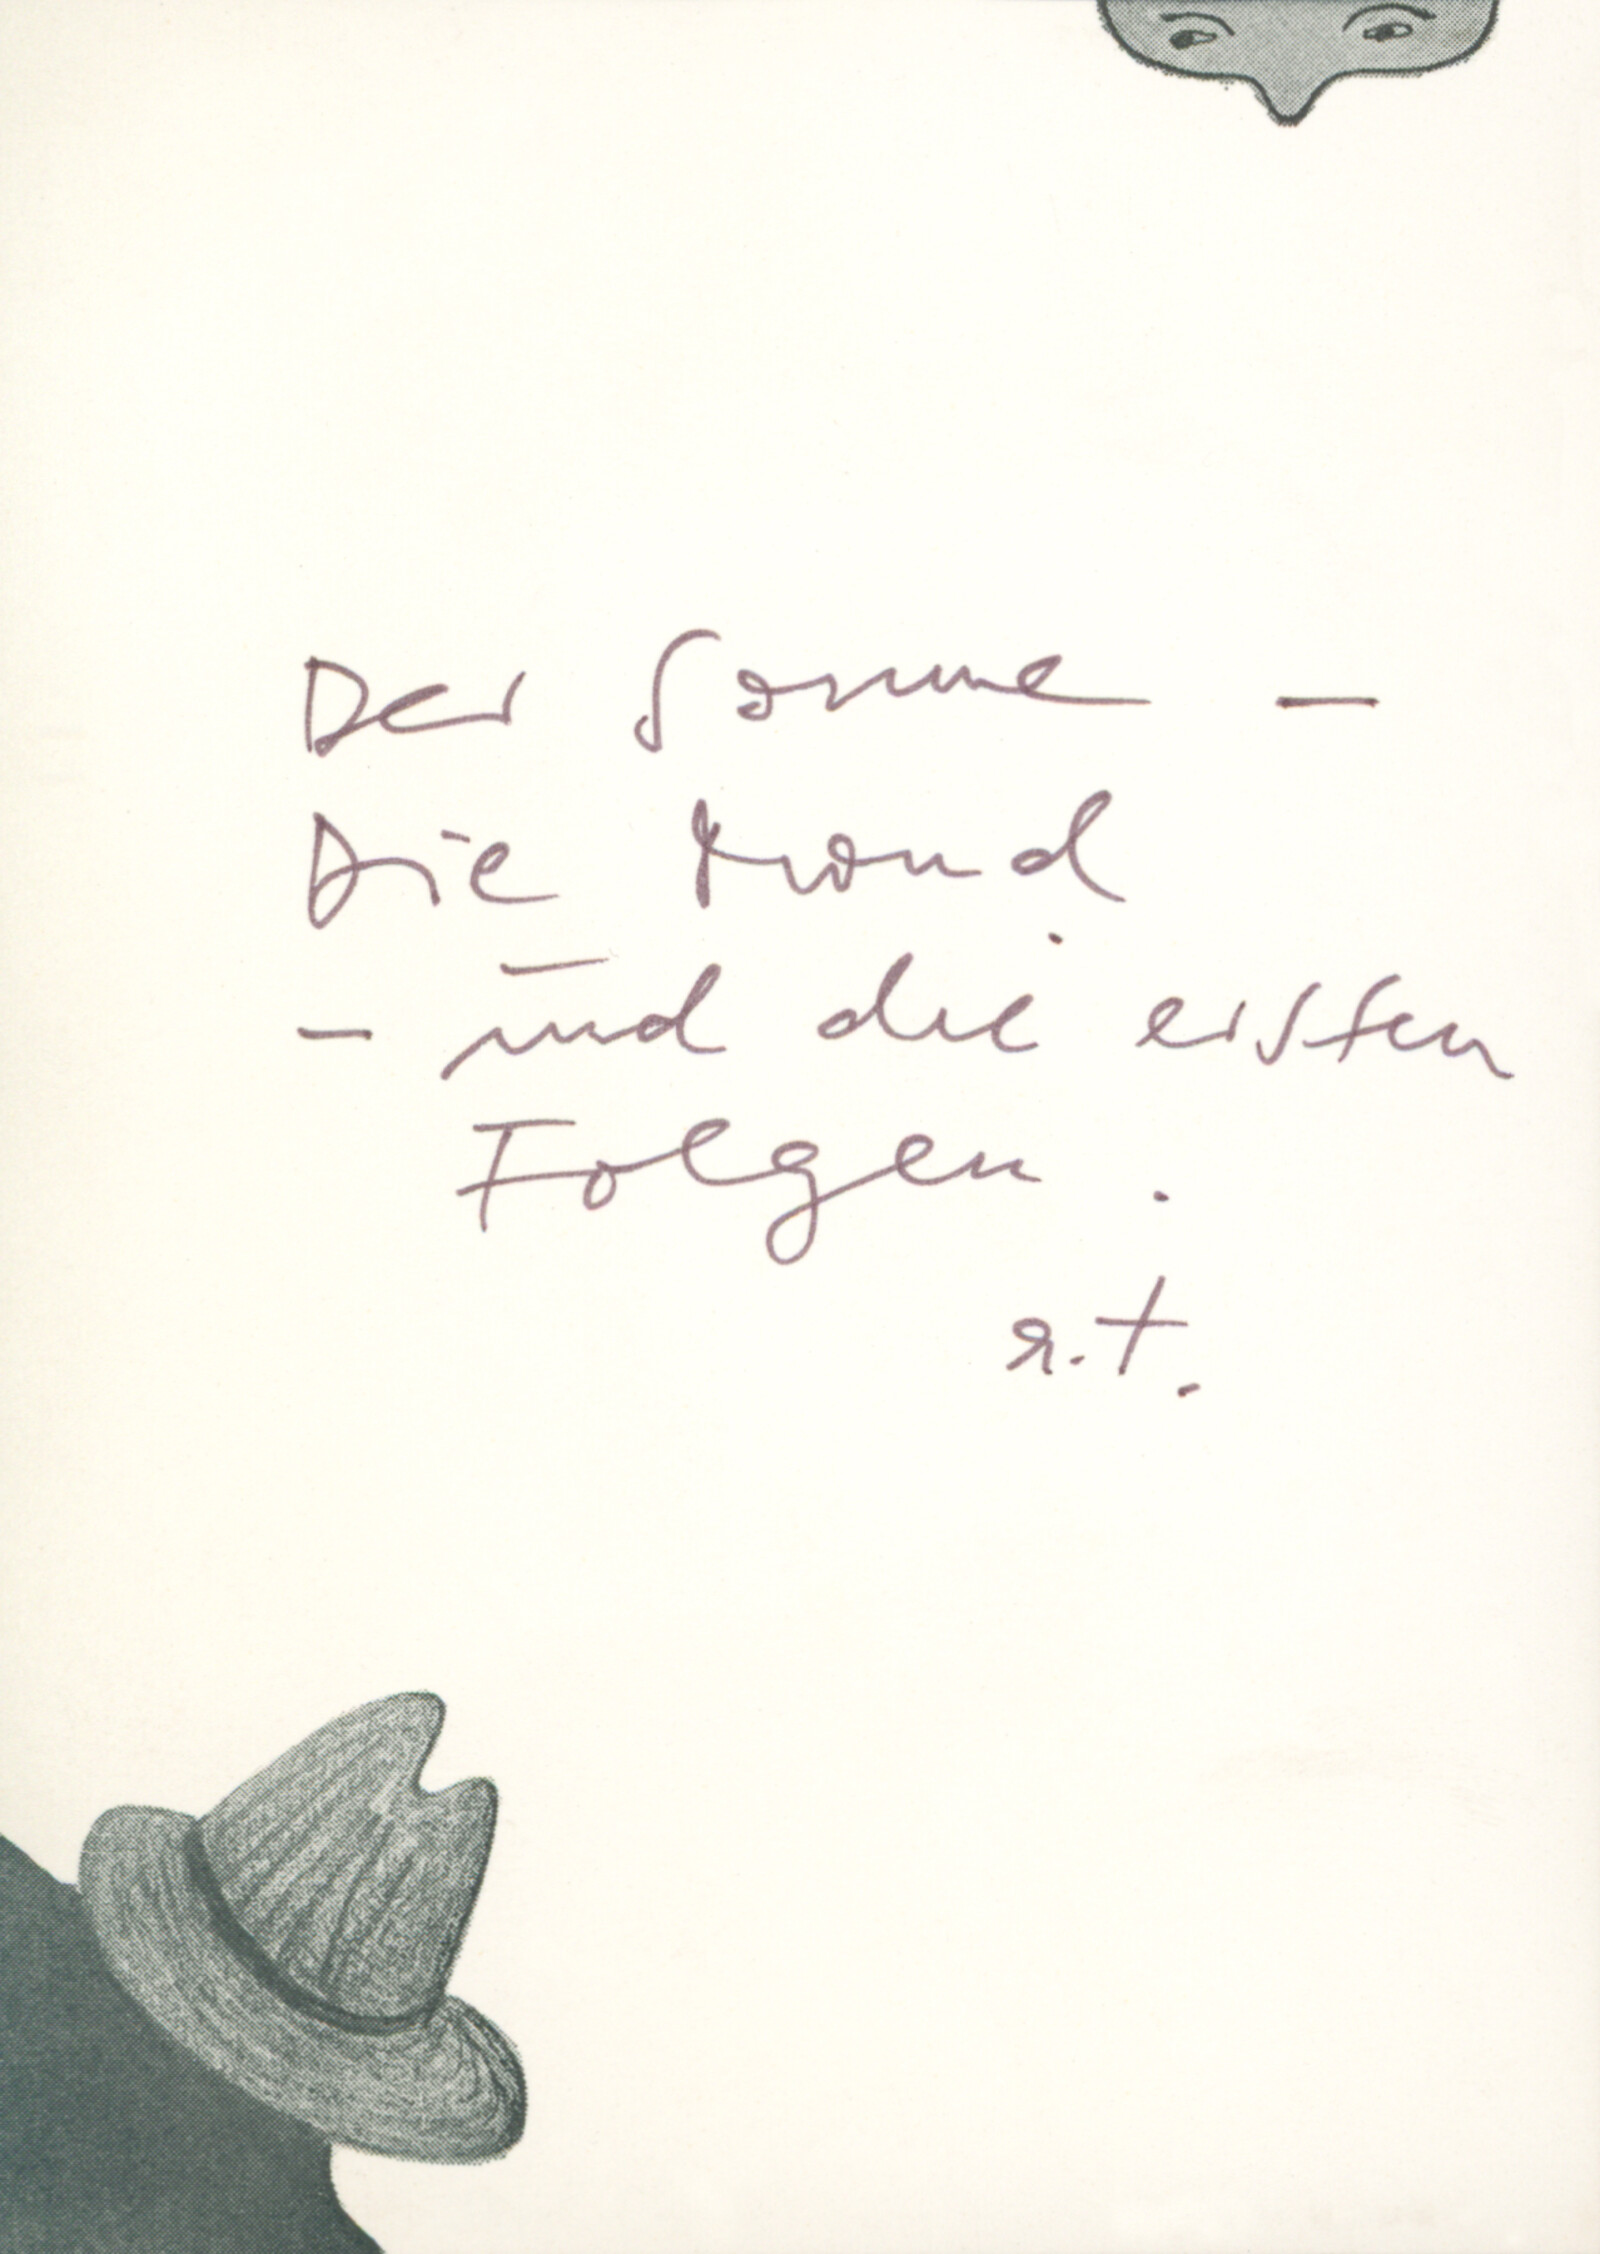 Der Sonne –
Die Mond
– und die ersten
Folgen.
r.t.